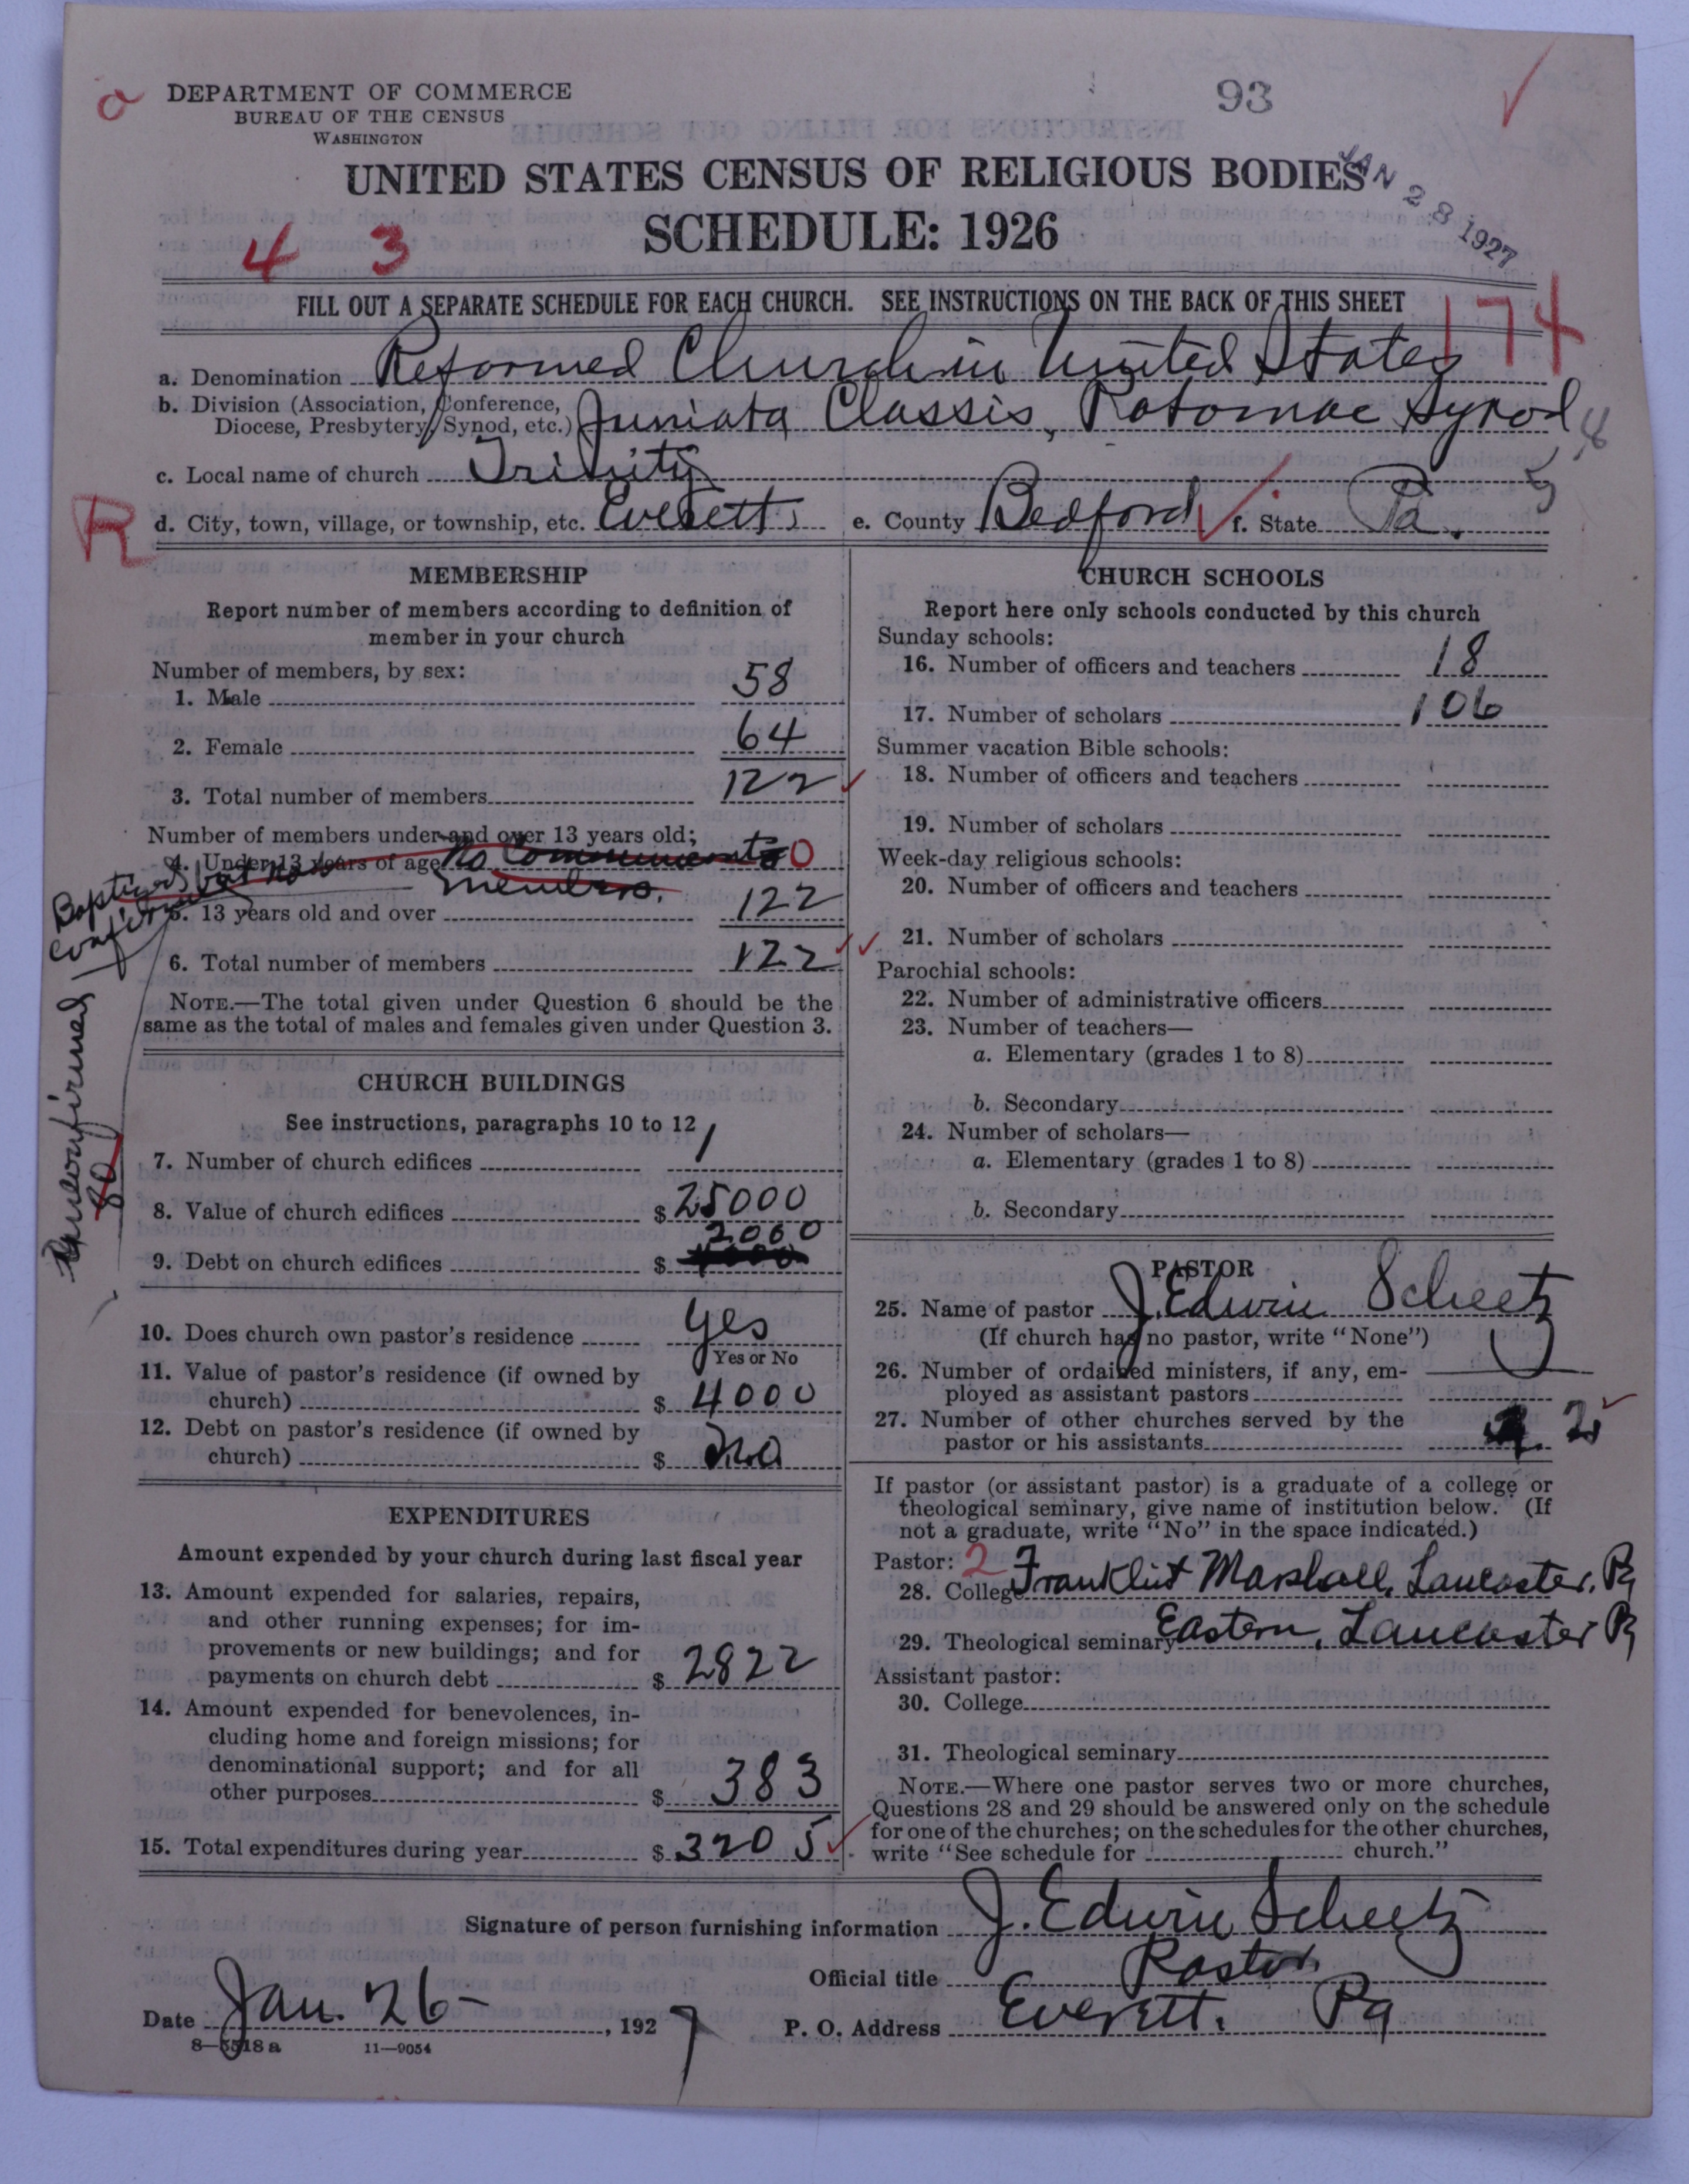 DEPARTMENT OF COMMERCE
BUREAU OF THE CENSUS
WASHINGTON
93
UNITED STATES CENSUS OF RELIGIOUS BODIES
JAN 28 1927
SCHEDULE: 1926
4 3
FILL OUT A SEPARATE SCHEDULE FOR EACH CHURCH. SEE INSTRUCTIONS ON THE BACK OF THIS SHEET
174
a. Denomination Reformed Church in United States
b. Division (Association, Conference, Diocese, Presbytery, Synod, etc.) Juniata Classis, Potomac Synod
c. Local name of church Trinity
R
d. City, town, village, or township, etc. Everett, e. County Bedford f. State Pa.
MEMBERSHIP
Report number of members according to definition of
member in your church
Number of members, by sex:
1. Male 58
2. Female 64
3. Total number of members 122
Number of members under and over 13 years old;
4. Under 13 years of age No Communicant 0
members.
Baptized but not
confirmed
5. 13 years old and over 122
6. Total number of members 122
Unconfirmed
80
NOTE.—The total given under Question 6 should be the
same as the total of males and females given under Question 3.
CHURCH BUILDINGS
See instructions, paragraphs 10 to 12
7. Number of church edifices 1
8. Value of church edifices $ 25000
9. Debt on church edifices $ 2000
10. Does church own pastor's residence Yes
Yes or No
11. Value of pastor's residence (if owned by
church) $ 4000
12. Debt on pastor's residence (if owned by
church) $ no
EXPENDITURES
Amount expended by your church during last fiscal year
13. Amount expended for salaries, repairs,
and other running expenses; for im-
provements or new buildings; and for
payments on church debt $ 2822
14. Amount expended for benevolences, in-
cluding home and foreign missions; for
denominational support; and for all
other purposes $ 383
15. Total expenditures during year $ 3205
CHURCH SCHOOLS
Report here only schools conducted by this church
Sunday schools:
16. Number of officers and teachers 18
17. Number of scholars 106
Summer vacation Bible schools:
18. Number of officers and teachers
19. Number of scholars
Week-day religious schools:
20. Number of officers and teachers
21. Number of scholars
Parochial schools:
22. Number of administrative officers
23. Number of teachers—
a. Elementary (grades 1 to 8)
b. Secondary
24. Number of scholars—
a. Elementary (grades 1 to 8)
b. Secondary
PASTOR
25. Name of pastor J. Edwin Scheetz
(If church has no pastor, write "None")
26. Number of ordained ministers, if any, em-
ployed as assistant pastors
27. Number of other churches served by the
pastor or his assistants 2
If pastor (or assistant pastor) is a graduate of a college or
theological seminary, give name of institution below. (If
not a graduate, write "No" in the space indicated.)
Pastor: 2
28. College Franklin & Marshall, Lancaster, Pa
29. Theological seminary Eastern, Lancaster Pa
Assistant pastor:
30. College
31. Theological seminary
NOTE.—Where one pastor serves two or more churches,
Questions 28 and 29 should be answered only on the schedule
for one of the churches; on the schedules for the other churches,
write "See schedule for church."
Signature of person furnishing information J. Edwin Scheetz
Official title Pastor
Date Jan. 26-, 1927 P. O. Address Everett. Pa
8—5518a 11—9054